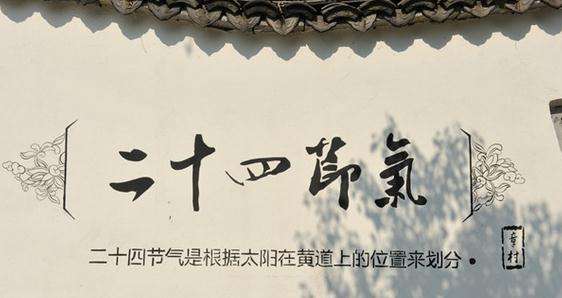 二十四節氣
二十四节气是根据太阳在黄道上的位置来划分·
章村